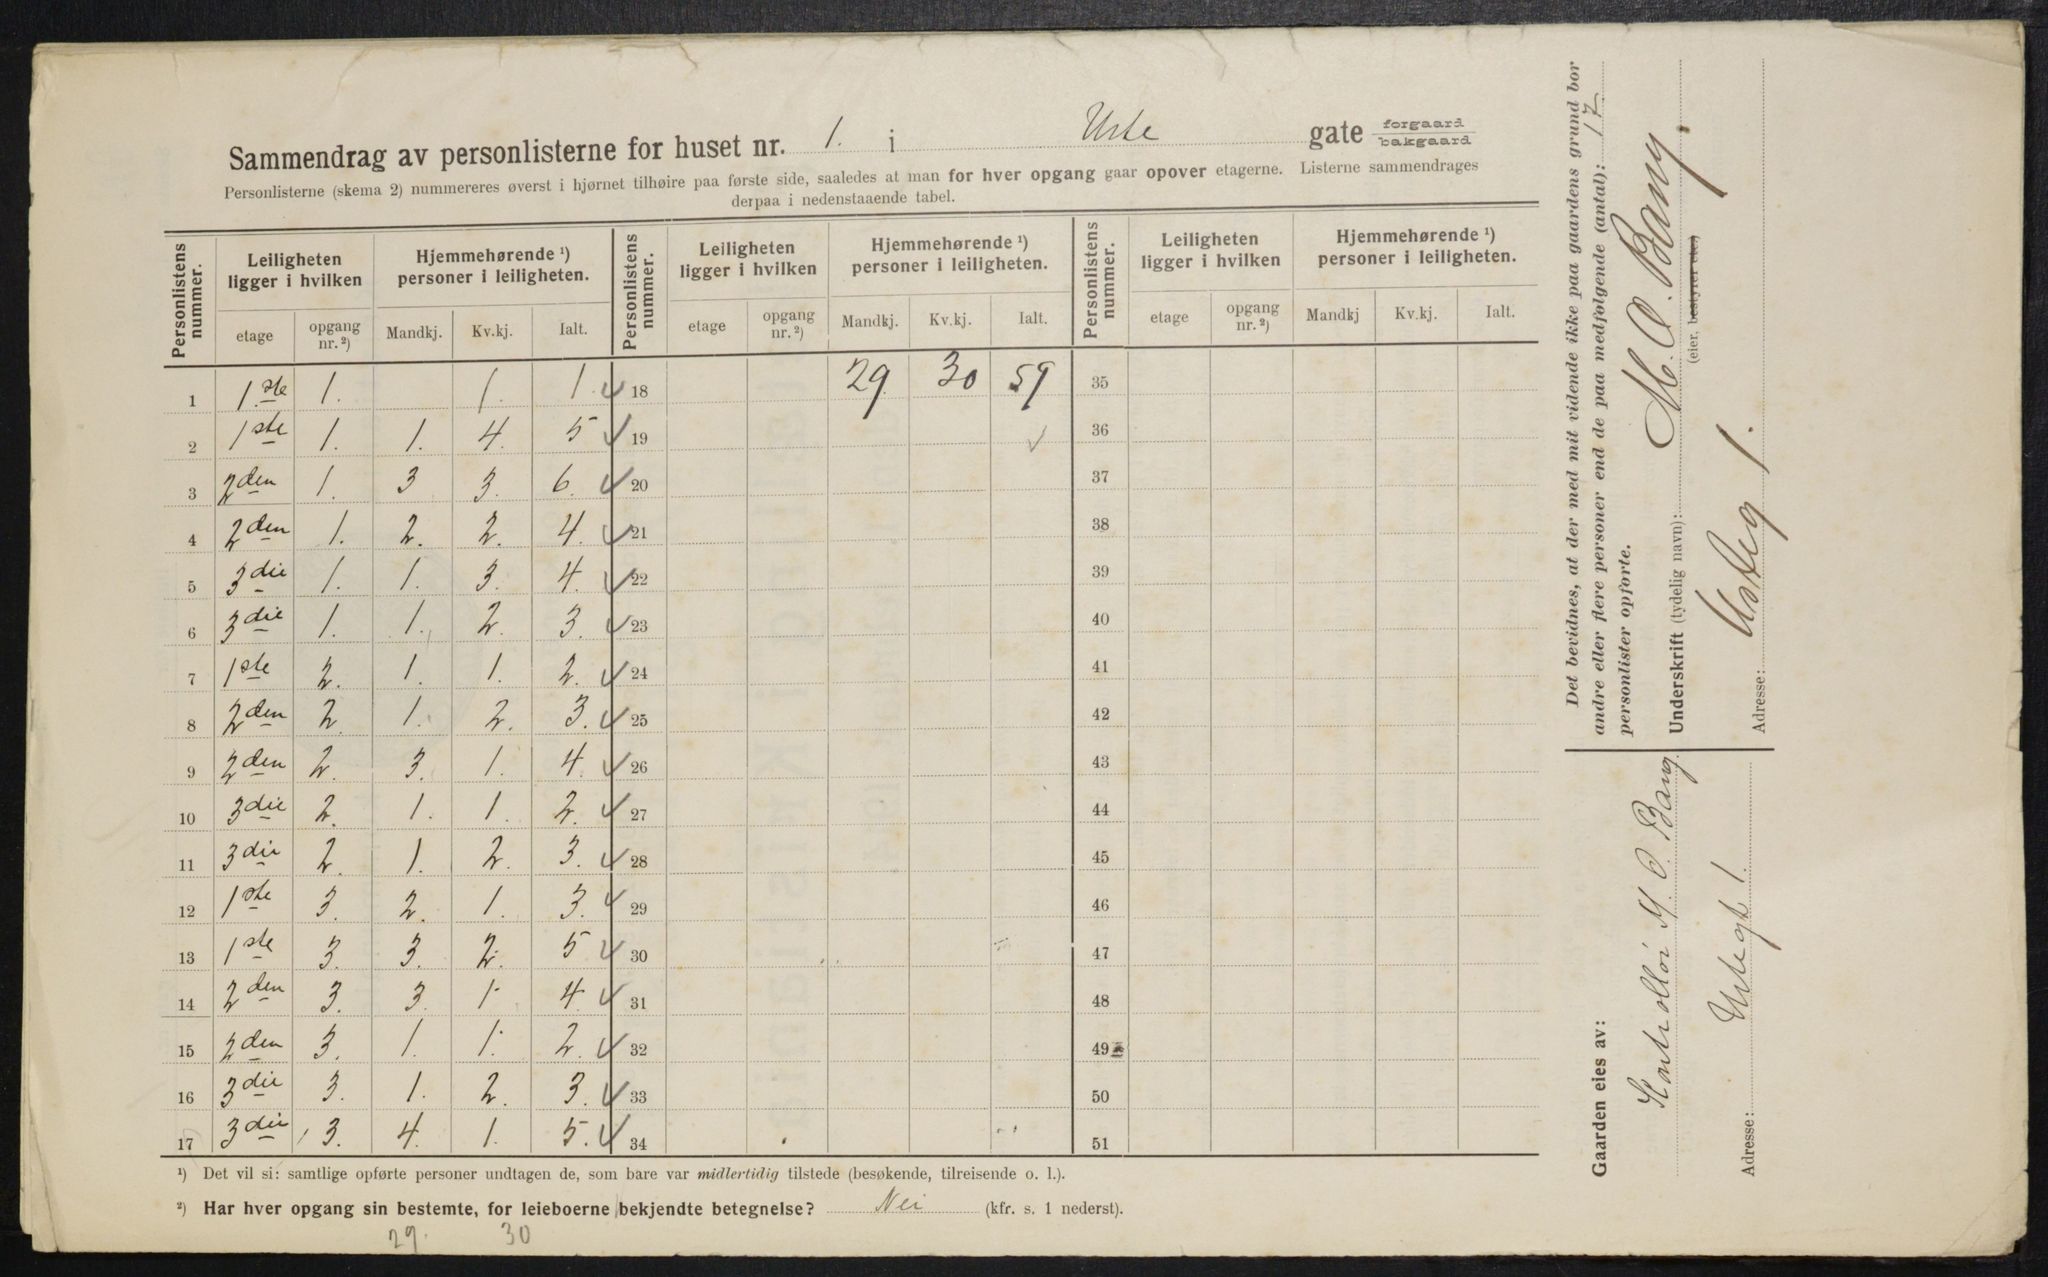 Sammendrag av personlisterne for huset nr. 1. i Urte gate forgaard bakgaard
Personlisterne (skema 2) nummereres øverst i hjørnet tilhøire paa første side, saaledes at man for hver opgang gaar opover etagerne. Listerne sammendrages
derpaa i nedenstaaende tabel.
Personlistens nummer. Leiligheten ligger i hvilken Hjemmehørende ¹) personer i leiligheten. Personlistens nummer. Leiligheten ligger i hvilken Hjemmehørende ¹) personer i leiligheten. Personlistens nummer. Leiligheten ligger i hvilken Hjemmehørende ¹) personer i leiligheten.
etage opgang nr. ²) Mandkj. Kv.kj. Ialt. etage opgang nr. ²) Mandkj. Kv.kj. Ialt. etage opgang nr. ²) Mandkj Kv.kj. Ialt.
1 1.ste 1. 1. 1. ✓ 18 29 30 59 35
2 1ste 1. 1. 4. 5 ✓ 19 ✓ 36
3 2den 1. 3 3. 6. ✓ 20 37
4 2den 1. 2. 2. 4. ✓ 21 38
5 3die 1. 1. 3. 4. ✓ 22 39
6 3die 1. 1. 2. 3. ✓ 23 40
7 1ste 2. 1. 1. 2. ✓ 24 41
8 2den 2. 1. 2. 3. ✓ 25 42
9 2den 2. 3. 1. 4. ✓ 26 43
10 3die 2. 1. 1. 2. ✓ 27 44
11 3die 2. 1. 2. 3. ✓ 28 45
12 1ste 3. 2. 1. 3. ✓ 29 46
13 1ste 3. 3. 2. 5 ✓ 30 47
14 2den 3. 3. 1. 4. ✓ 31 48
15 2den 3. 1. 1. 2. ✓ 32 49
16 3die 3. 1. 2. 3. ✓ 33 50
17 3die 3. 4. 1. 5. ✓ 34 51
¹) Det vil si: samtlige opførte personer undtagen de, som bare var midlertidig tilstede (besøkende, tilreisende o. l.).
²) Har hver opgang sin bestemte, for leieboerne bekjendte betegnelse? Nei (kfr. s. 1 nederst).
29. 30
Det bevidnes, at der med mit vidende ikke paa gaardens grund bor
andre eller flere personer end de paa medfølgende (antal): 17.
personlister opførte.
Underskrift (tydelig navn): M. O. Bang.
(eier, bestyrer etc.)
Adresse: Urteg 1.
Gaarden eies av:
Kontrollør M. O. Bang.
Adresse: Urtegt 1.